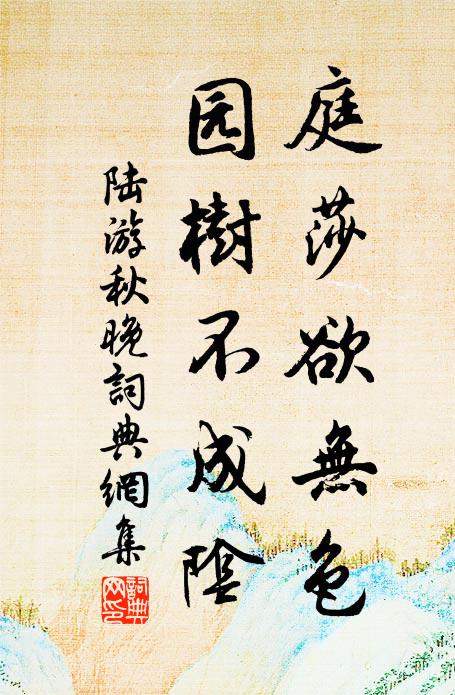 庭莎欲無色
园樹不成陰
陆游秋晚詞典網集
詞典网印